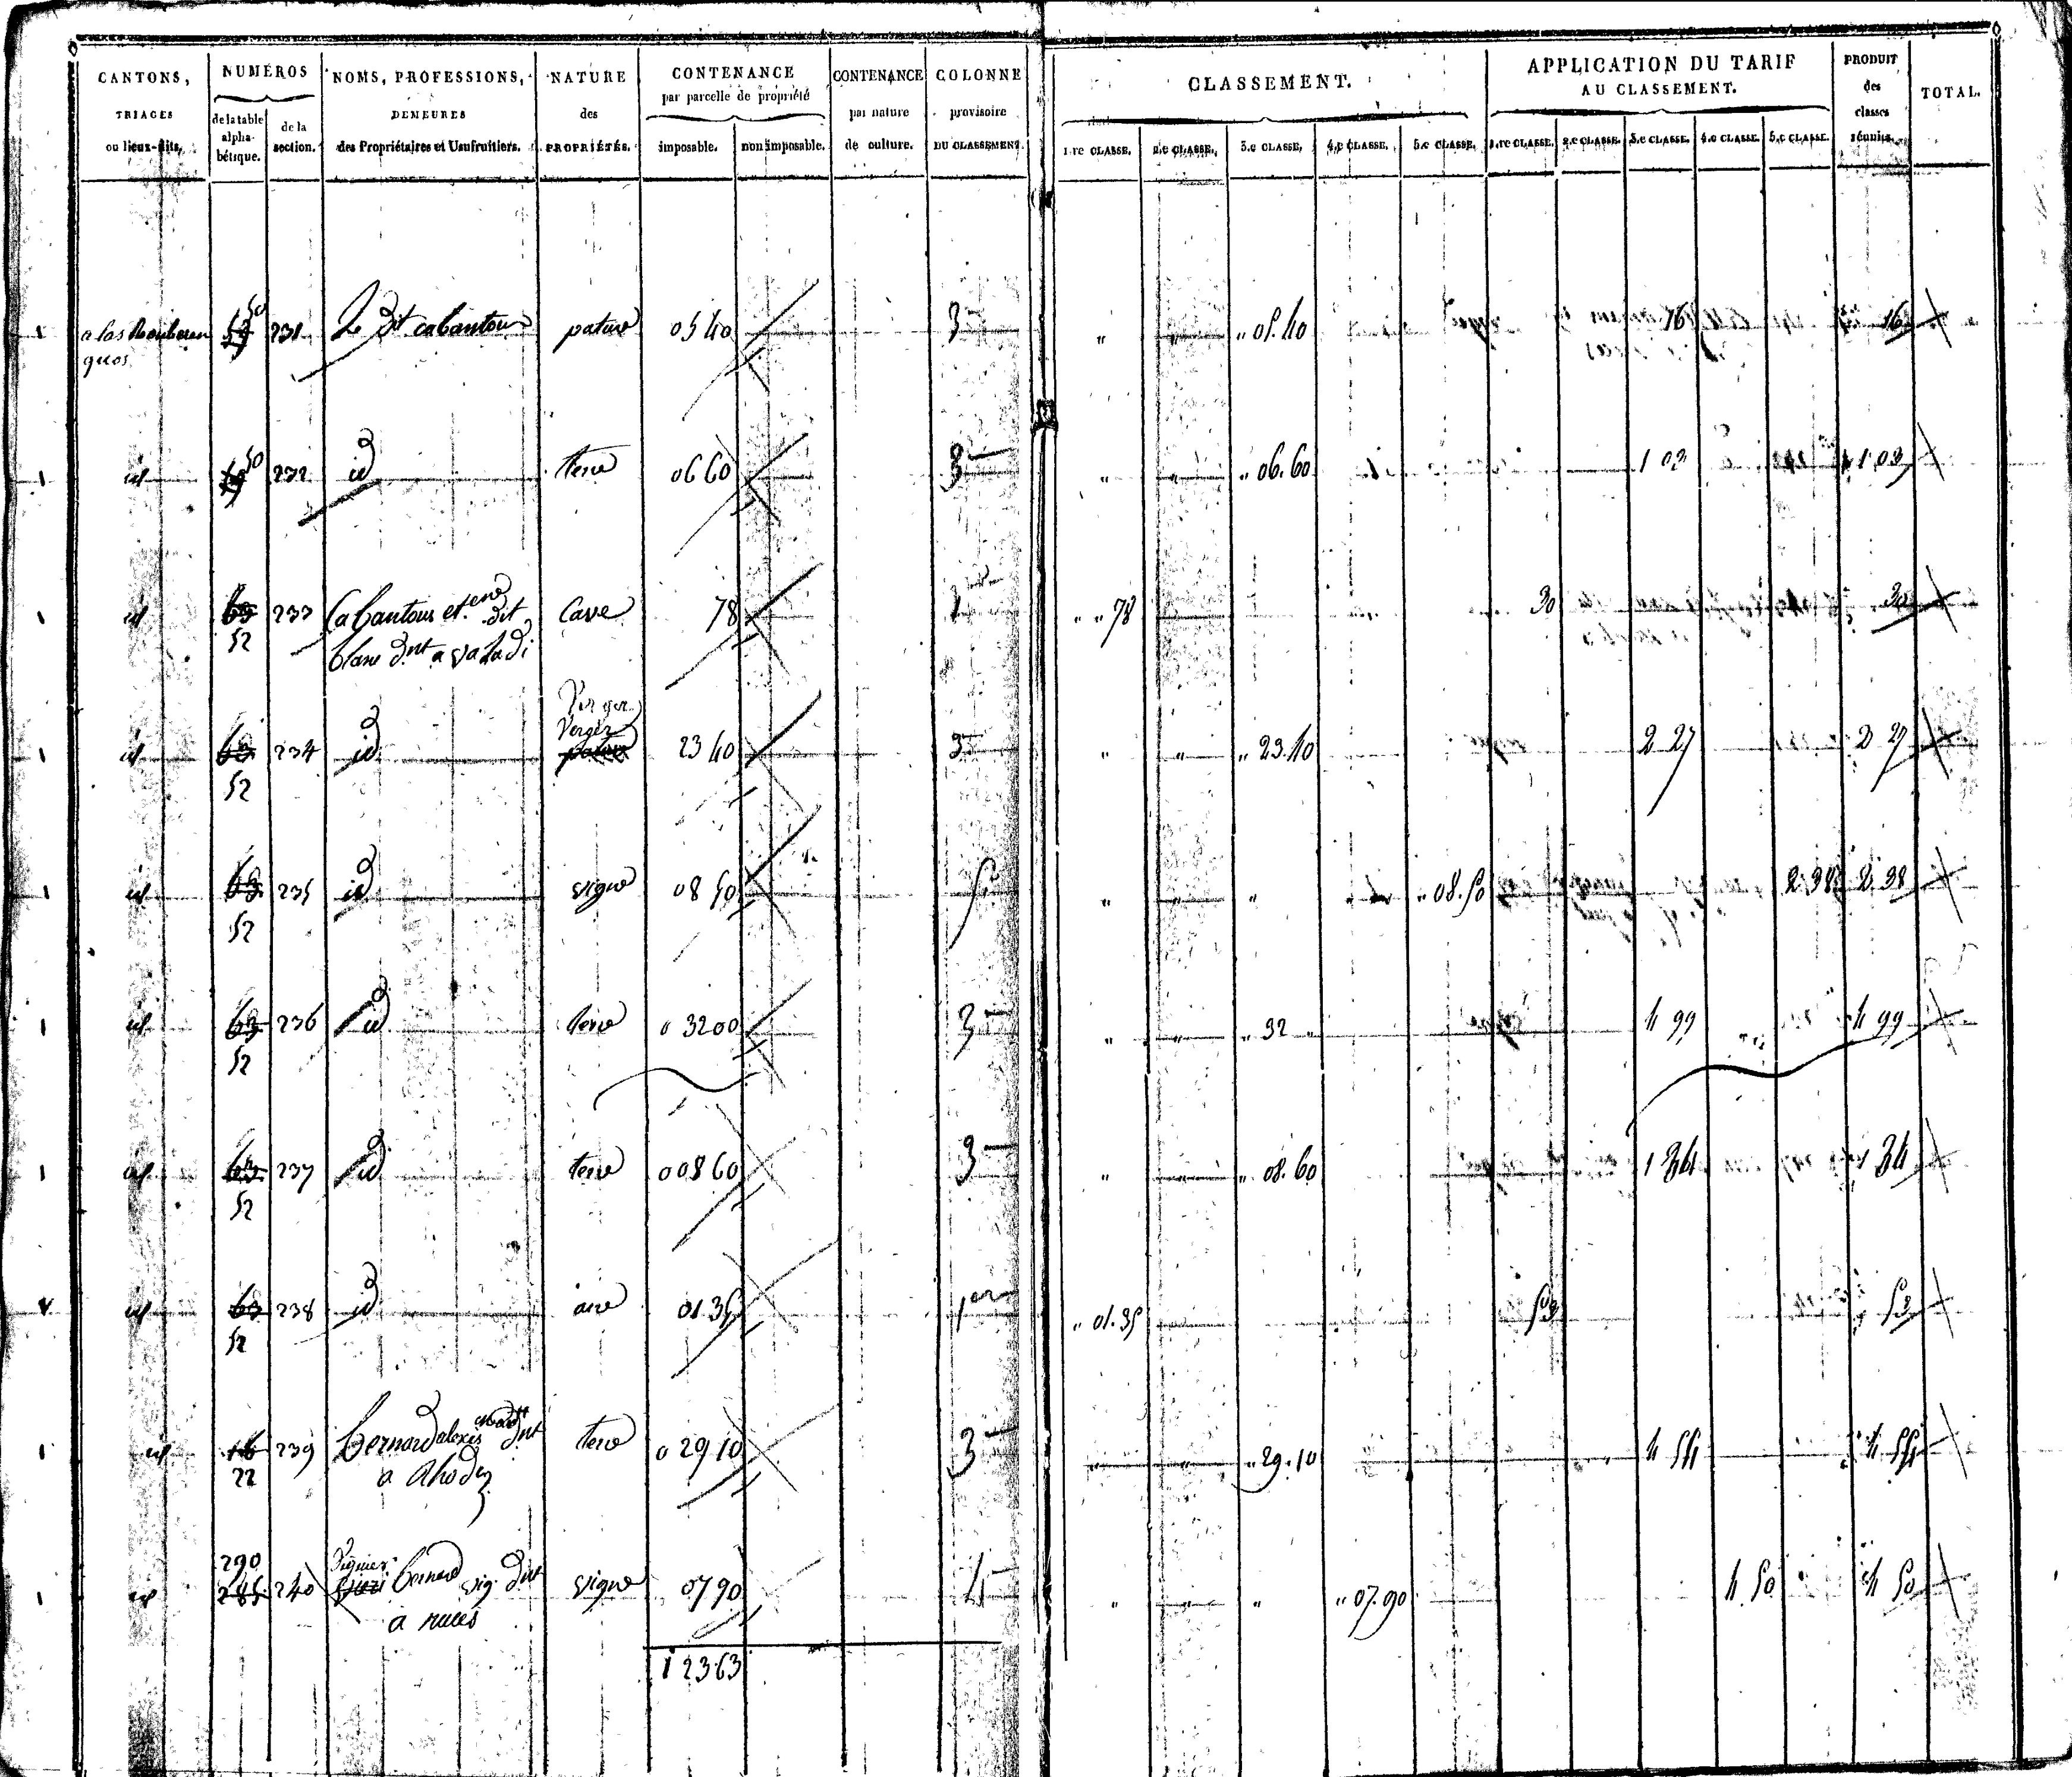 CANTONS, TRIAGES ou lieux-dits,
NUMÉROS
de la table alpha-bétique.
de la section.
NOMS, PROFESSIONS, DEMEURES des Propriétaires et Usufruitiers.
NATURE des PROPRIÉTÉS.
CONTENANCE par parcelle de propriété
imposable.
non imposable.
CONTENANCE par nature de culture.
COLONNE provisoire DU CLASSEMENT.
CLASSEMENT.
1.re CLASSE.
2.e CLASSE.
3.e CLASSE.
4.e CLASSE.
5.e CLASSE.
APPLICATION DU TARIF AU CLASSEMENT.
1.re CLASSE.
2.e CLASSE.
3.e CLASSE.
4.e CLASSE.
5.e CLASSE.
PRODUIT des classes réunies.
TOTAL.
a las 50 231 Le dit cabantous pature 05 40 3 " " " 05.40 16 16
id 50 232 id terre 06 60 3 " " " 06.60 1 03 1 03
id 63 52 233 Cabantous et.ene dit Cave 78 1 " " 78 30 30
blanc d.nt a valadi
id 63 52 234 id Verger 23 40 3 " " " 23.40 2 27 2 27
id 63 52 235 id vigne 08 50 5 " " " " 08.50 2 38 2 38
id 63 52 236 id terre 0 32 00 3 " " " 32 " 4 99 4 99
id 63 52 237 id terre 0 08 60 3 " " " 08.60 1 34 1 34
id 63 52 238 id aire 01 35 1er " 01.35 53 53
id 16 22 239 bernard alexis d.nt terre 0 29 10 3 " " " 29.10 4 54 4 54
a Rhodez
id 290 285 240 Viguier bernard vig. d.nt vigne 07 90 4 " " " " 07.90 4 50 4 50
a ruces
1 23 63